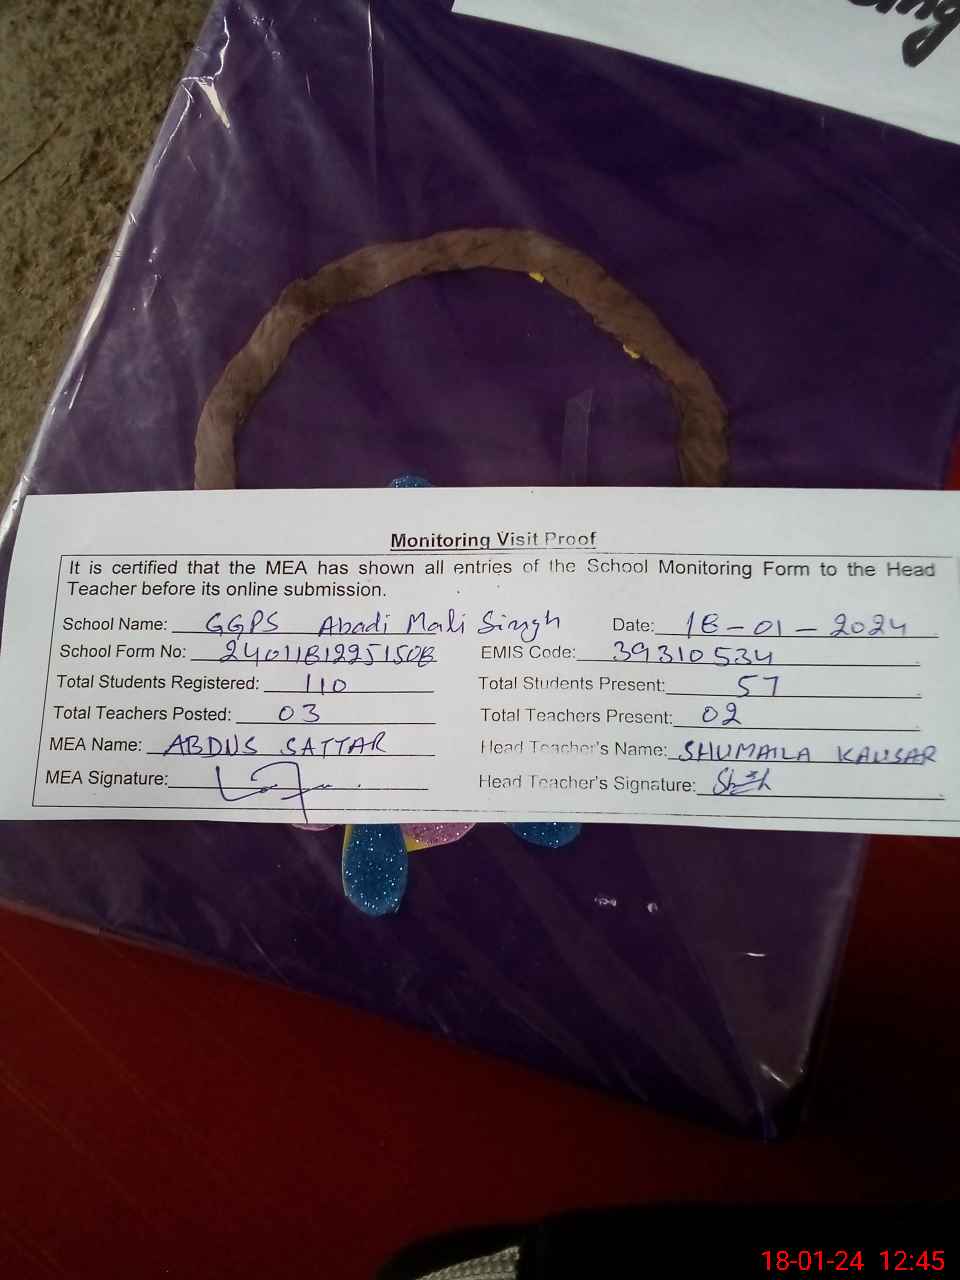 Monitoring Visit Proof
It is certified that the MEA has shown all entries of the School Monitoring Form to the Head
Teacher before its online submission.
School Name: GGPS Abadi Mali Singh Date: 18-01-2024
School Form No: 24011812251508 EMIS Code: 39310534
Total Students Registered: 110 Total Students Present: 57
Total Teachers Posted: 03 Total Teachers Present: 02
MEA Name: ABDUS SATTAR Head Teacher's Name: SHUMAILA KAUSAR
MEA Signature: Head Teacher's Signature:
18-01-24 12:45